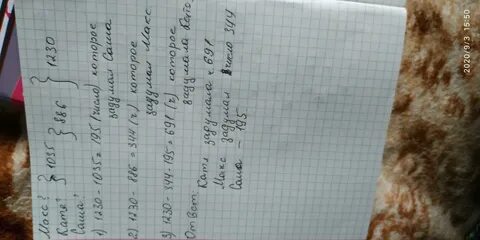 Макс? } 1035
Катя? } 886 } 1230
Саша?
1) 1230 - 1035 = 195 (число) которое
задумал Саша
2) 1230 - 886 = 344 (ч.) которое
задумал Макс
3) 1230 - 344 - 195 = 691 (ч.) которое
задумала Катя
Ответ: Катя задумала ч. 691
Макс задумал число 344
Саша - 195
2020/9/3 15:50